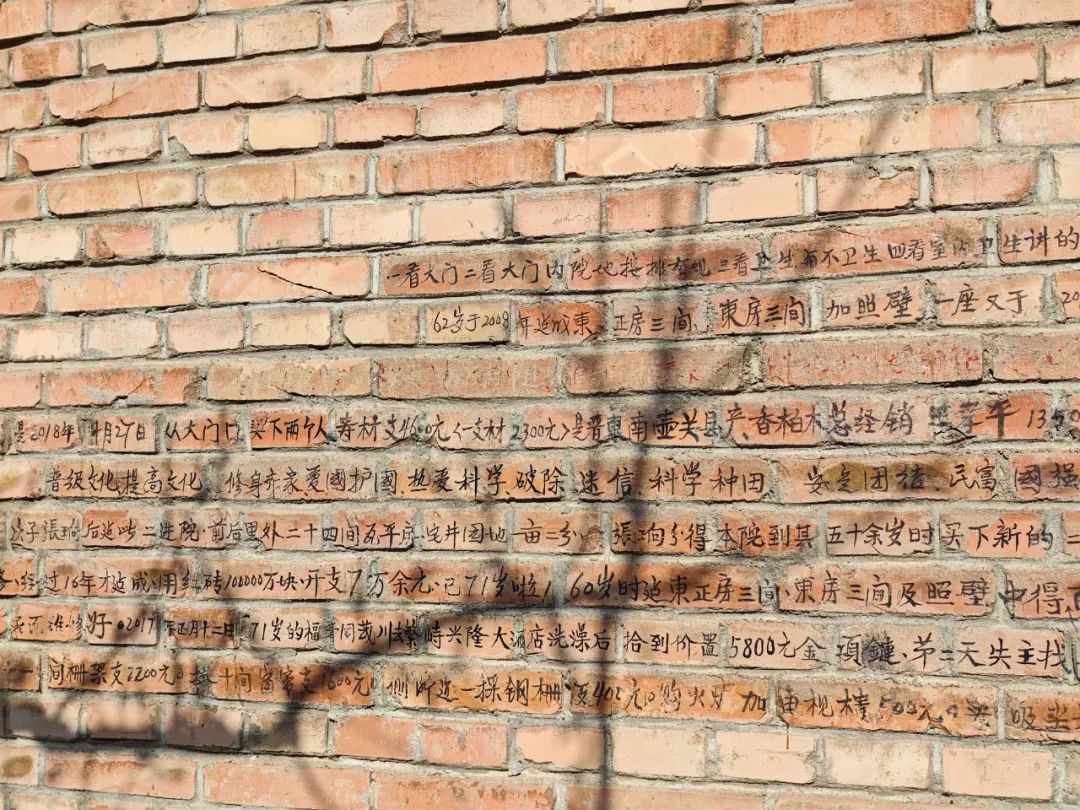 一看大门二看大门内院地 三看卫生 不卫生四看室 卫生讲的
62岁于2008年造成東 正房三间、東房三间 加照壁 一座又于 20
是2018年 4月27日 从大门口 买下两个人寿材支4600元〈一支材2300元〉是晋東南壶关县产香柏木总经销 平 1350
晋级文化 提高文化 修身齐家 爱國护國 热爱科学 破除迷信 科学种田 安定团结 民富國强
公子張珦 后造 二进院 前后里外二十四间瓦平房 宅井园地一亩二分 張珦分得本院到其 五十余岁时 买下新的二
经过16年才造成 用红砖100000万块 开支7万余元 已71岁啦! 60岁时造東正房三间、東房三间及照壁 中得
好。2017年正月十二日 71岁的福 同茂川去繁峙兴隆大酒店洗澡后 拾到价置5800元金項鏈、第二天失主找
一间栅架支2200元。 十间窗 支1600元。侧所造一 钢栅 支402元。购火 加电视 500元。 吸尘